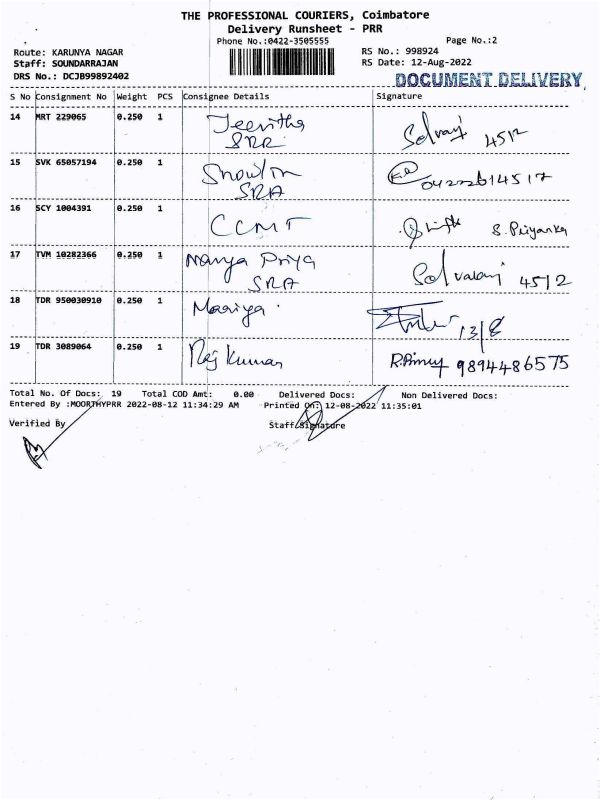 THE PROFESSIONAL COURIERS, Coimbatore
Delivery Runsheet - PRR
Phone No.:0422-3505555 Page No.:2
Route: KARUNYA NAGAR RS No.: 998924
Staff: SOUNDARRAJAN RS Date: 12-Aug-2022
DRS No.: DCJB99892402 DOCUMENT DELIVERY
S No Consignment No Weight PCS Consignee Details Signature
14 MRT 229065 0.250 1 Jeevitha
SRR 4512
15 SVK 65057194 0.250 1 Snowlin
SRA 04222614517
16 SCY 1004391 0.250 1 CCMT S. Priyanka
17 TVM 10282366 0.250 1 Priya
SRA 4512
18 TDR 950030910 0.250 1 13/8
19 TDR 3089064 0.250 1 Raj Kumar 9894486575
Total No. Of Docs: 19 Total COD Amt: 0.00 Delivered Docs: Non Delivered Docs:
Entered By :MOORTHYPRR 2022-08-12 11:34:29 AM Printed On: 12-08-2022 11:35:01
Verified By Staff Signature